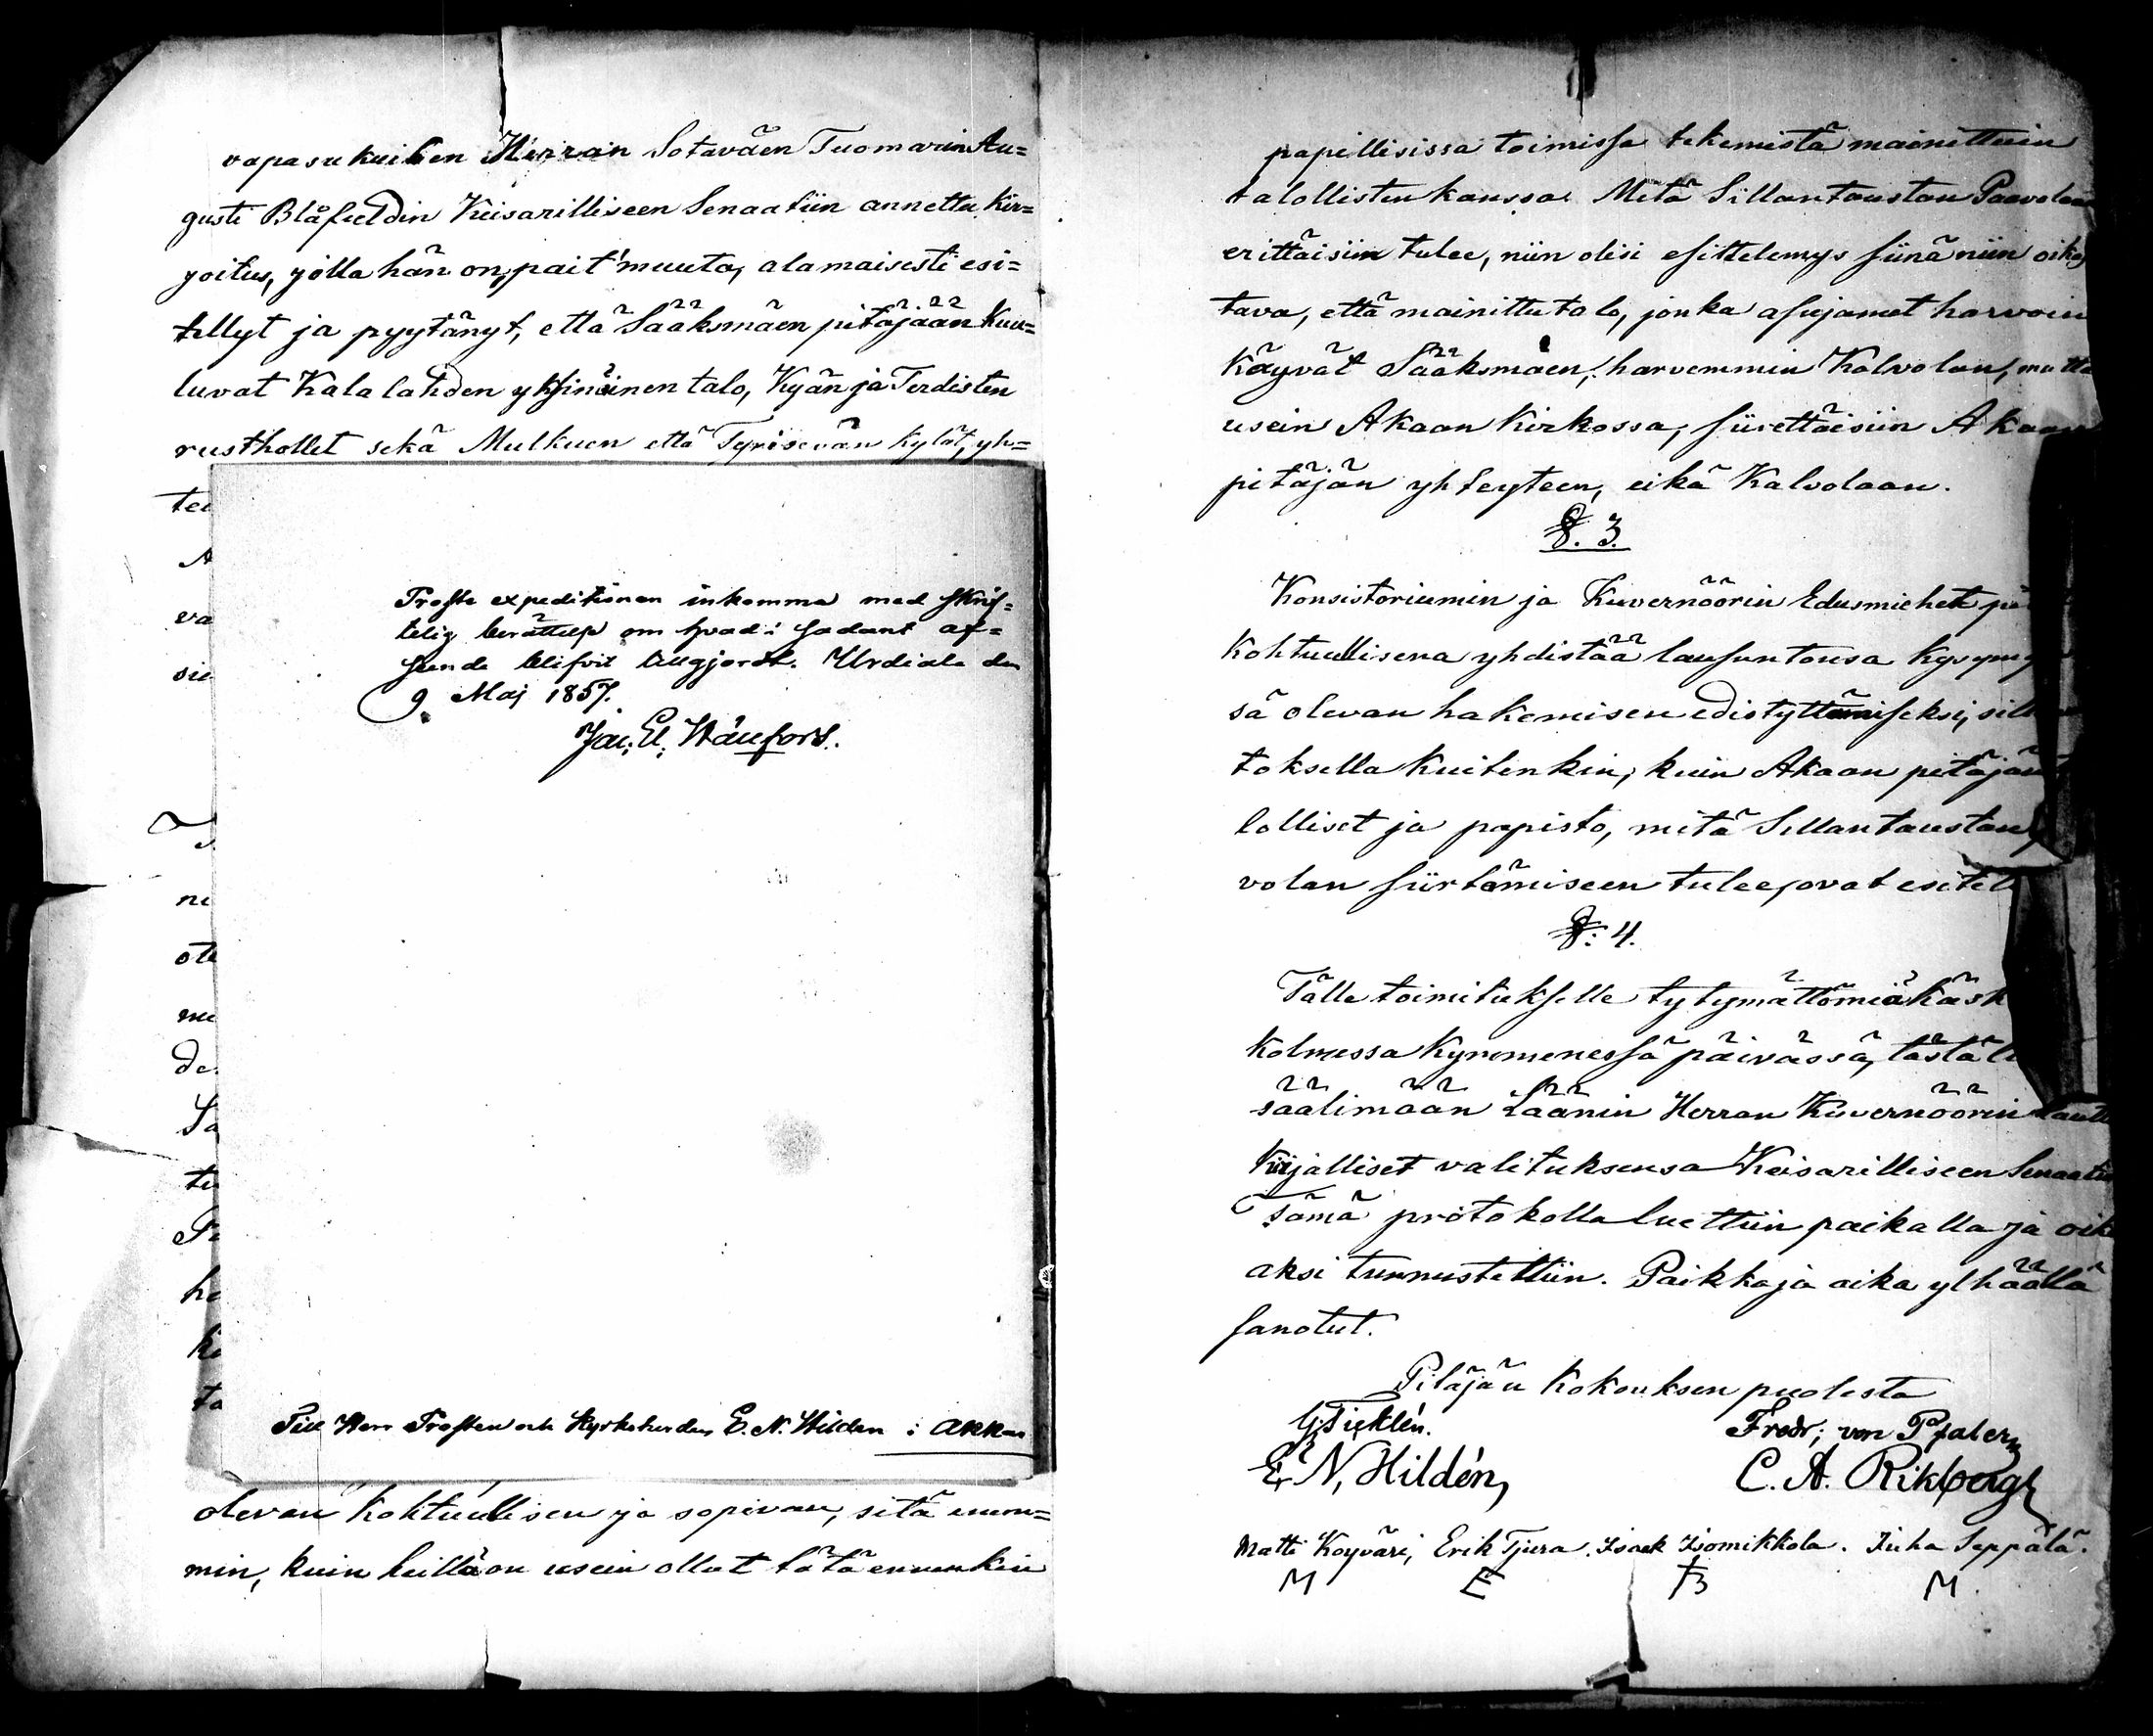 vapasukuisen Herran Sotaväen Tuomarin Au=
gusti Blåfieldin Keisarilliseen Senaatiin annettu kir=
joitus, jolla hän on, pait' muuta, alamaisesti esi=
tellyt ja pyytänyt, että Sääksmäen pitäjään kuu=
luvat Kalalahden yksinäinen talo, Kyän ja Terdisten
rusthollet sekä Mulkuen että Tyrisevän kylät, yh=
te
A
va
sii
Profte expeditionen inkomma med skrif=
telig berättelse om hvad i sådant af=
seende blifvit åtgjordt. Urdiala den
9 Maj 1857.
ni
ote
mu
de
Sa
tu
Pa
ha
ko
ta
Till Herr Prosten och Kyrkoherden E. N. Hilden i Akkas
olevan kohtuullisen ja sopivan, sitä enem=
min, kuin heillä on usein ollut tätä ennenkin
papillisissa toimissa tekemistä mainittuin
talollisten kanssa. Mitä Sillantaustan Paavolaan
erittäisiin tulee, niin olisi esittelemys siinä niin oikas
tava, että mainittu talo, jonka asujamet harvoin
käyvät Sääksmäen, harvemmin Kalvolan, mutta
usein Akaan kirkossa, siirettäisiin Akaan
pitäjän yhteyteen, eikä Kalvolaan.
§. 3.
Konsistoriumin ja Kuvernöörin Edusmiehet pi
kohtuullisena yhdistää lausuntonsa kysymy
sä olevan hakemisen edistyttämiseksi, sill
toksella kuitenkin, kuin Akaan pitäjän
lolliset ja papisto, mitä Sillantaustan
volan siirtämiseen tulee, ovat esitel
§: 4.
Tälle toimitukselle tytymättömiä käsk
kolmessa kymmenessä päivässä, tästä l
säälimään Läänin Herran Kuvernöörin kautt
kirjalliset valituksensa Keisarilliseen Senaatii
Tämä protokolla luettiin paikalla ja oik
aksi tunnustettiin. Paikka ja aika ylhäällä
sanotut.
Pitäjän kokouksen puolesta
Fredr; von Pfaler
E. N. Hildén,
C. A. Rikberg
Matti Koyväri, Erik Tjura. Isaak Isomikkola. Juha Seppälä.
M E M